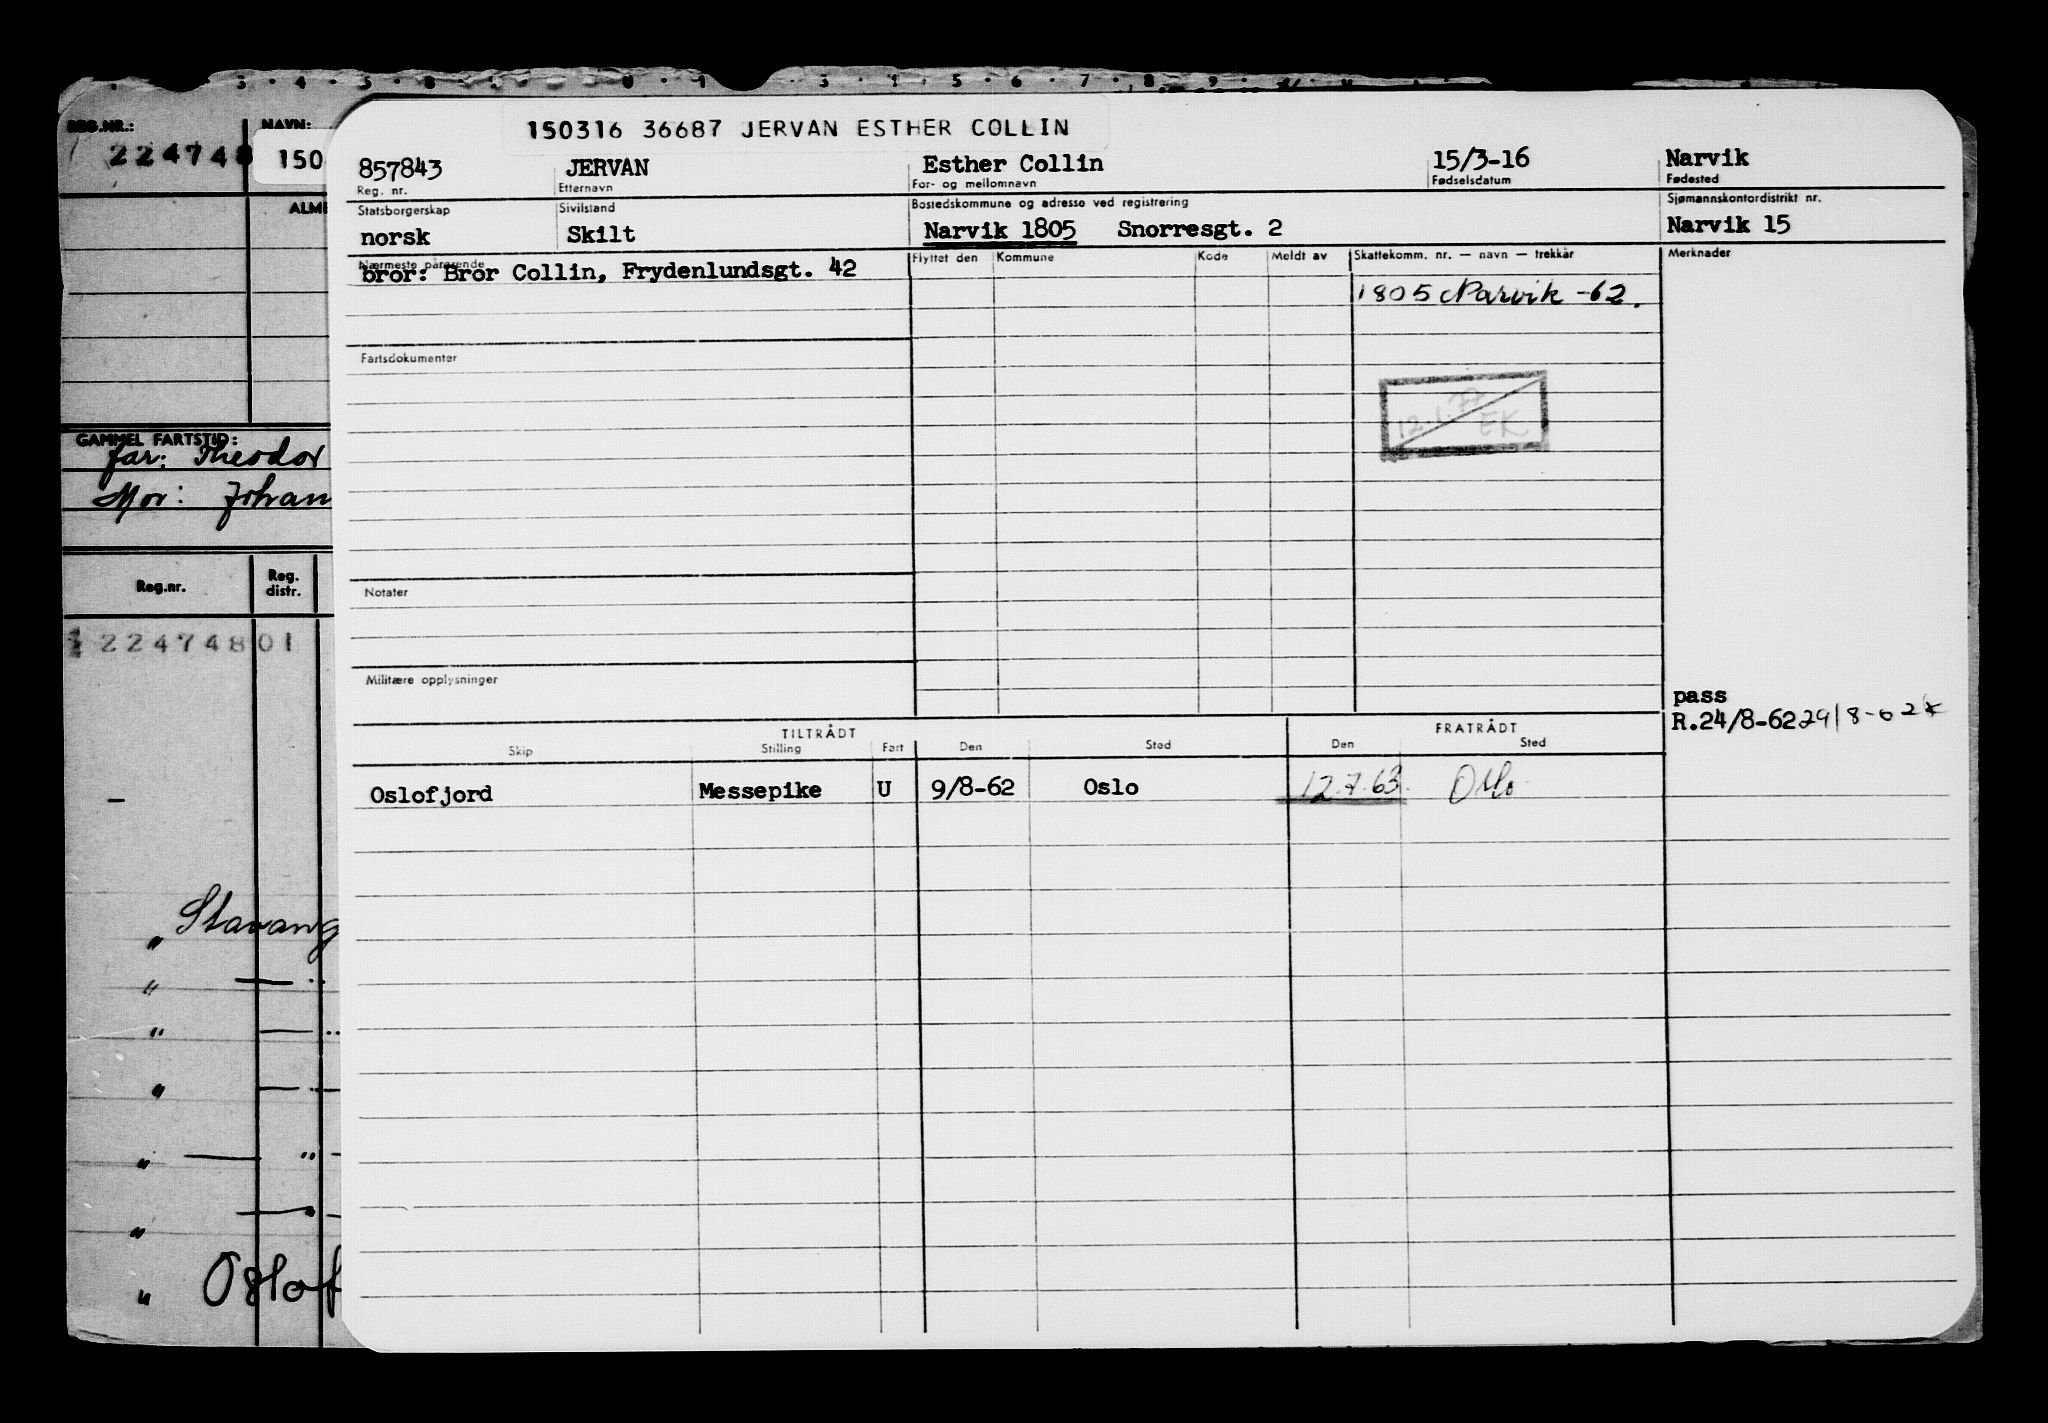 3 4 5 8 0 1 3 1 5 6 7 8 9
REG.NR.: NAVN:
224748 150
ALME
GAMMEL FARTSTID:
far: Theodor
Mor: Johan
Reg.nr. Reg. distr.
22474801
" Stavang
" — "
" — "
" — "
" — "
" —
" Oslof
150316 36687 JERVAN ESTHER COLLIN
857843 JERVAN Esther Collin 15/3-16 Narvik
Reg. nr. Etternavn For- og mellomnavn Fødselsdatum Fødested
Statsborgerskap Sivilstand Bostedskommune og adresse ved registrering Sjømannskontordistrikt nr.
norsk Skilt Narvik 1805 Snorresgt. 2 Narvik 15
Nærmeste pårørende Flyttet den Kommune Kode Meldt av Skattekomm. nr. — navn — trekkår Merknader
bror: Bror Collin, Frydenlundsgt. 42
1805 Narvik -62.
Fartsdokumenter
12.1.77 EK
Notater
Militære opplysninger
pass
R.24/8-62 29/8-62
TILTRÅDT FRATRÅDT
Skip Stilling Fart Den Sted Den Sted
Oslofjord Messepike U 9/8-62 Oslo 12.7.63. Oslo